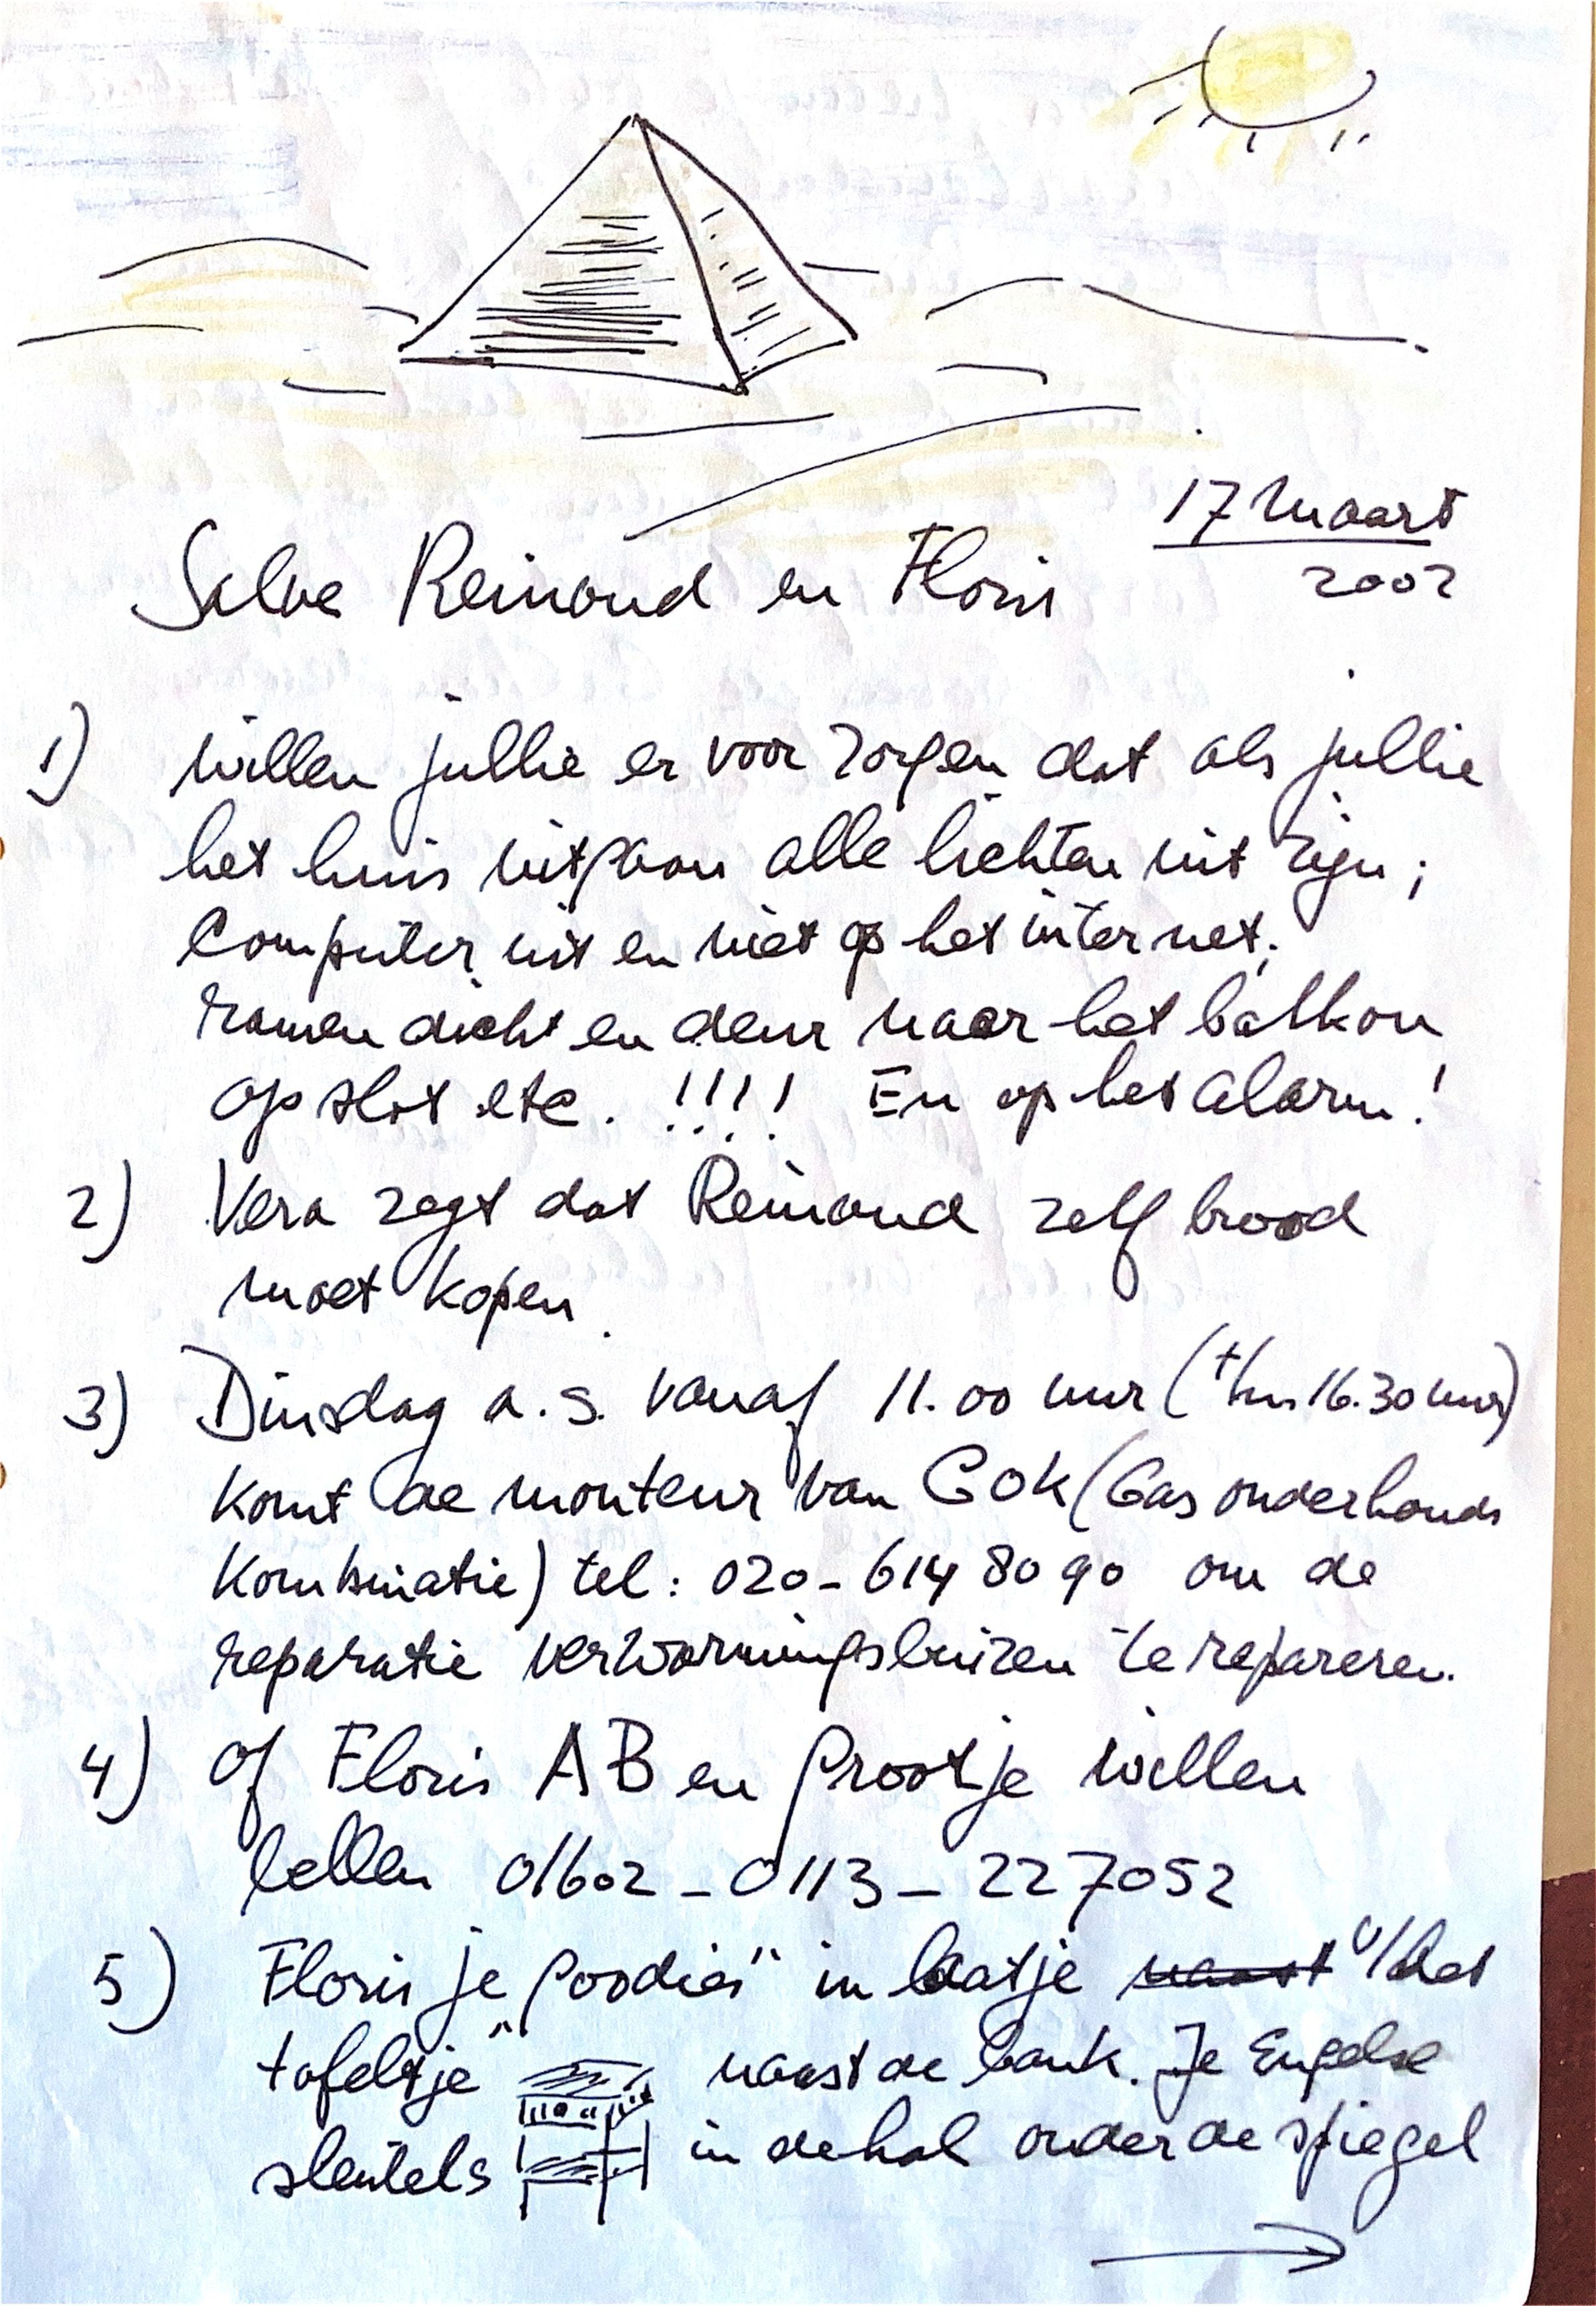 17 Maart
2002
Salve Reinoud en Floris
1) Willen jullie er voor zorgen dat als jullie
het huis uitgaan alle lichten uit zijn;
Computer uit en niet op het internet;
ramen dicht en deur naar het balkon
op slot etc. !!!! En op het alarm!
2) Vera zegt dat Reinoud zelf brood
moet kopen.
3) Dinsdag a.s. vanaf 11.00 uur (t/m 16.30 uur)
komt de monteur van GOK (Gas onderhouds
Kombinatie) tel: 020-614 80 90 om de
reparatie verwarmingsbuizen te repareren.
4) Of Floris AB en grootje willen
bellen 01602-0113-227052
5) Floris je "goodies" in laatje naast v/het
tafeltje naast de bank. Je Engelse
sleutels in de hal onder de spiegel